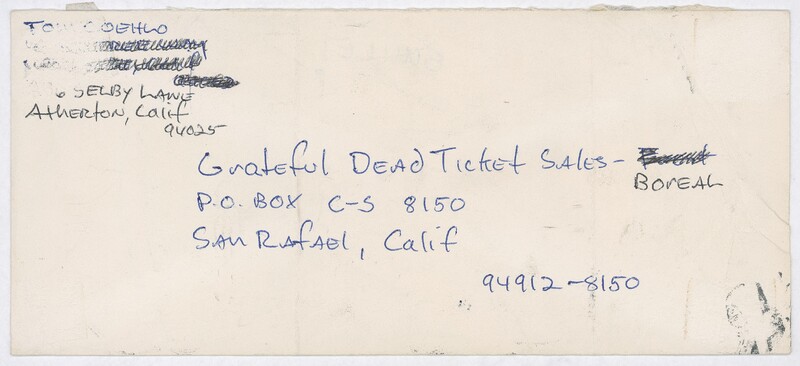 COEHLO
SELBY LANE
Atherton, Calif
94025
Grateful Dead Ticket Sales-
Boreal
P.O. Box C-S 8150
San Rafael, Calif
94912-8150